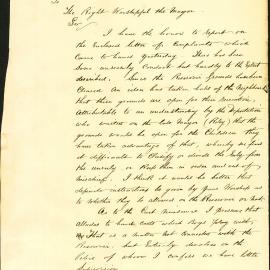 To
The Right Worshipful the Mayor
Sir
I have the honor to report on
the Enclosed letter of Complaints which
came to hand yesterday. There has been
some unseemly Conduct but hardly to the Extent
described. Since the Reserve grounds have been
Closed An idea has been taken hold of the Neighbourhood
that these grounds are open for their recreation,
Attributable to an understanding by the Deputation
who waited on the late Mayor (Riley) that the
grounds would be open for the Children they
have taken advantage of that, whereby we find
it difficult to Classify or divide the Party from
the unruly or keep them in order and out of
mischief. I think it would be better that
definite instructions be given by your Worship as
to whether they be allowed on the Reserve or Not.
As to the Cart Nuisance I presume that
alludes to hand Carts which Boys play with,
that is a matter not Connected with the
Reserve, but Entirely devolves on the
Police of whom I confess we have little
Supervision